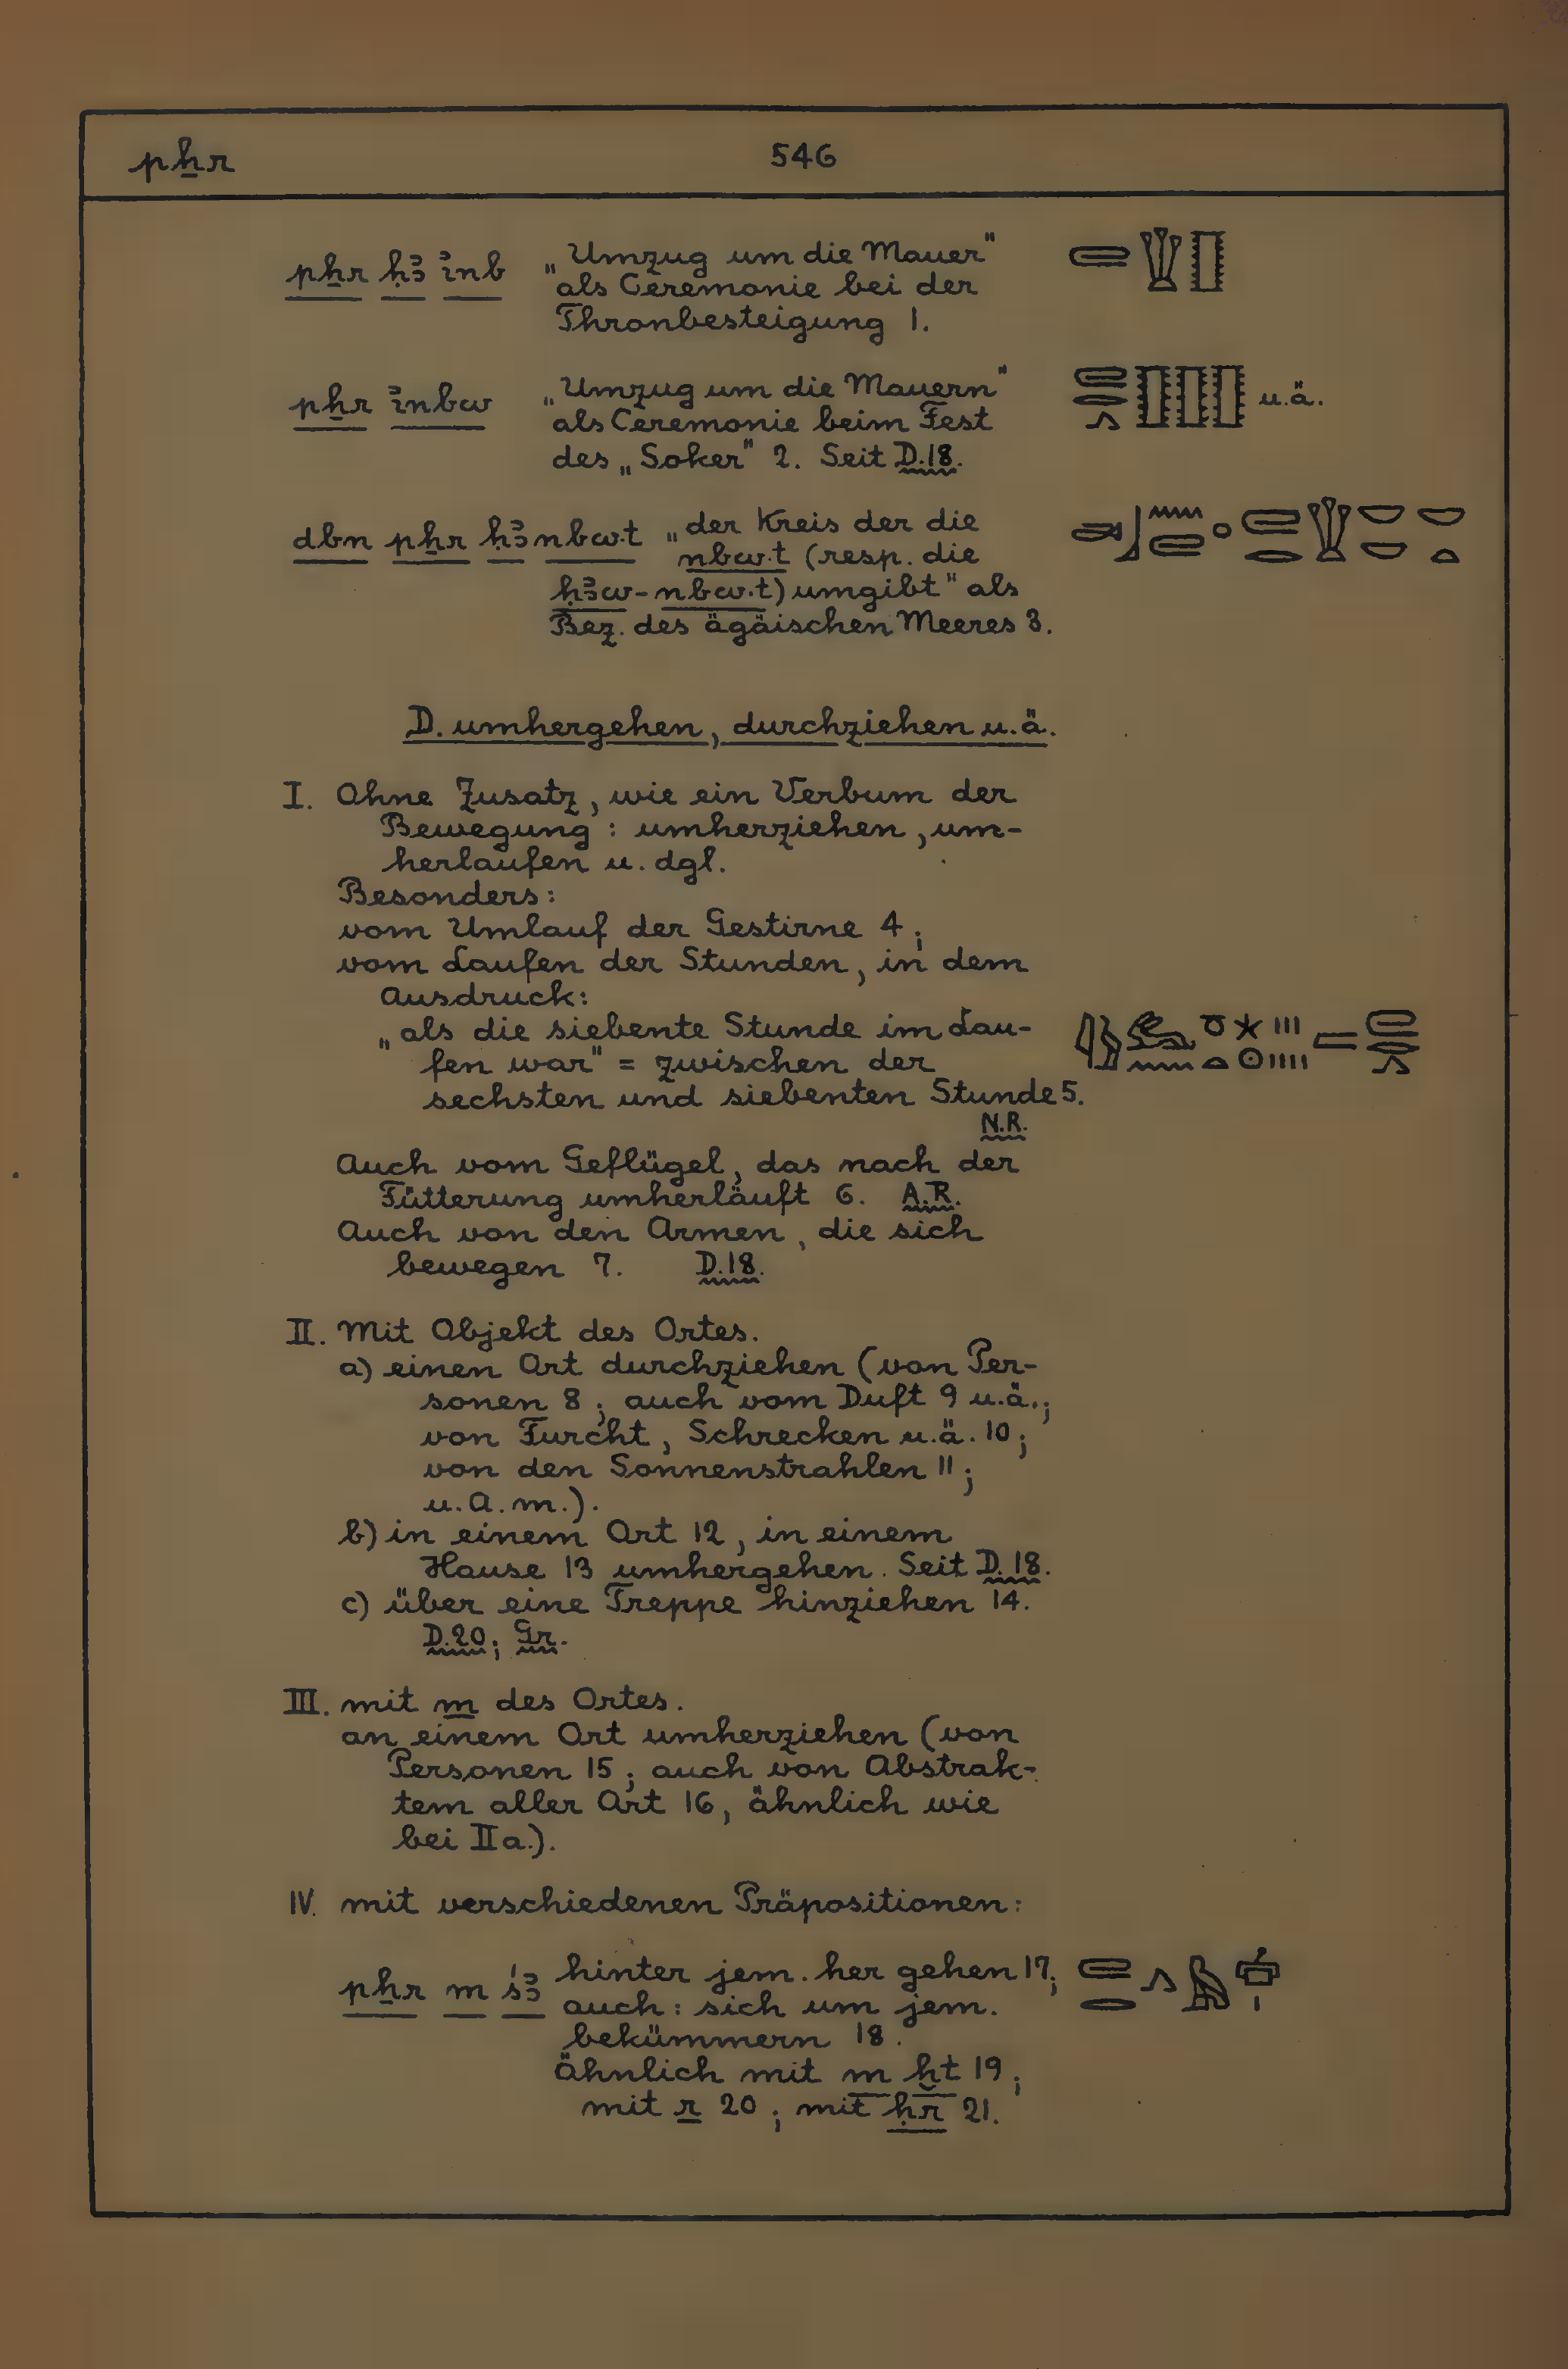 pẖr
546
pẖr ḥꜣ inb „Umzug um die Mauer"
als Ceremonie bei der
Thronbesteigung 1.
pẖr inbw „Umzug um die Mauern" u.ä.
als Ceremonie beim Fest
des „Soker" 2. Seit D.18.
dbn pẖr ḥꜣ nbw.t „der Kreis der die
nbw.t (resp. die
ḥꜣw-nbw.t) umgibt" als
Bez. des ägäischen Meeres 3.
D. umhergehen, durchziehen u.ä.
I. Ohne Zusatz, wie ein Verbum der
Bewegung: umherziehen, um-
herlaufen u. dgl.
Besonders:
vom Umlauf der Gestirne 4;
vom Laufen der Stunden, in dem
Ausdruck:
„als die siebente Stunde im Lau-
fen war" = zwischen der
sechsten und siebenten Stunde 5.
N.R.
Auch vom Geflügel, das nach der
Fütterung umherläuft 6. A.R.
Auch von den Armen, die sich
bewegen 7. D.18.
II. Mit Objekt des Ortes.
a) einen Ort durchziehen (von Per-
sonen 8; auch vom Duft 9 u.ä.;
von Furcht, Schrecken u.ä. 10;
von den Sonnenstrahlen 11;
u.a.m.).
b) in einem Ort 12, in einem
Hause 13 umhergehen. Seit D.18.
c) über eine Treppe hinziehen 14.
D.20; Gr.
III. mit m des Ortes.
an einem Ort umherziehen (von
Personen 15; auch von Abstrak-
tem aller Art 16, ähnlich wie
bei IIa.).
IV. mit verschiedenen Präpositionen:
pẖr m śꜣ hinter jem. her gehen 17;
auch: sich um jem.
bekümmern 18.
Ähnlich mit m ḫt 19;
mit r 20; mit ḥr 21.